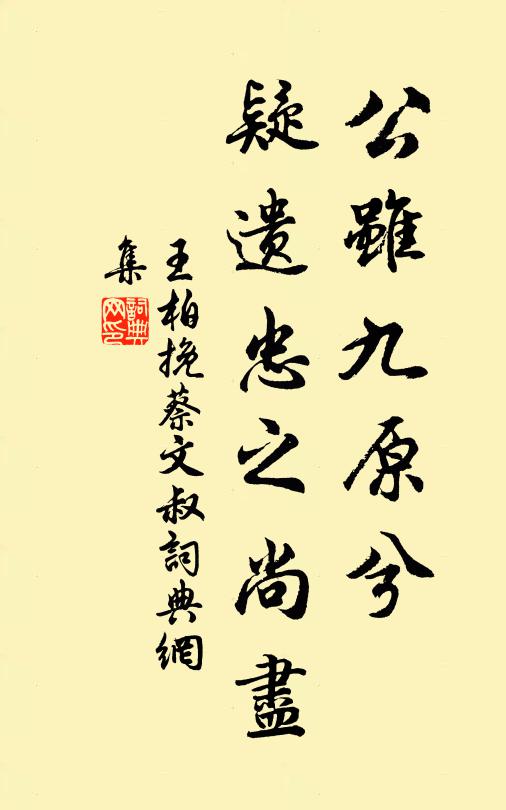 公雖九原兮
疑遺忠之尚盡
王柏挽蔡文叔詞典網
集
詞典網印